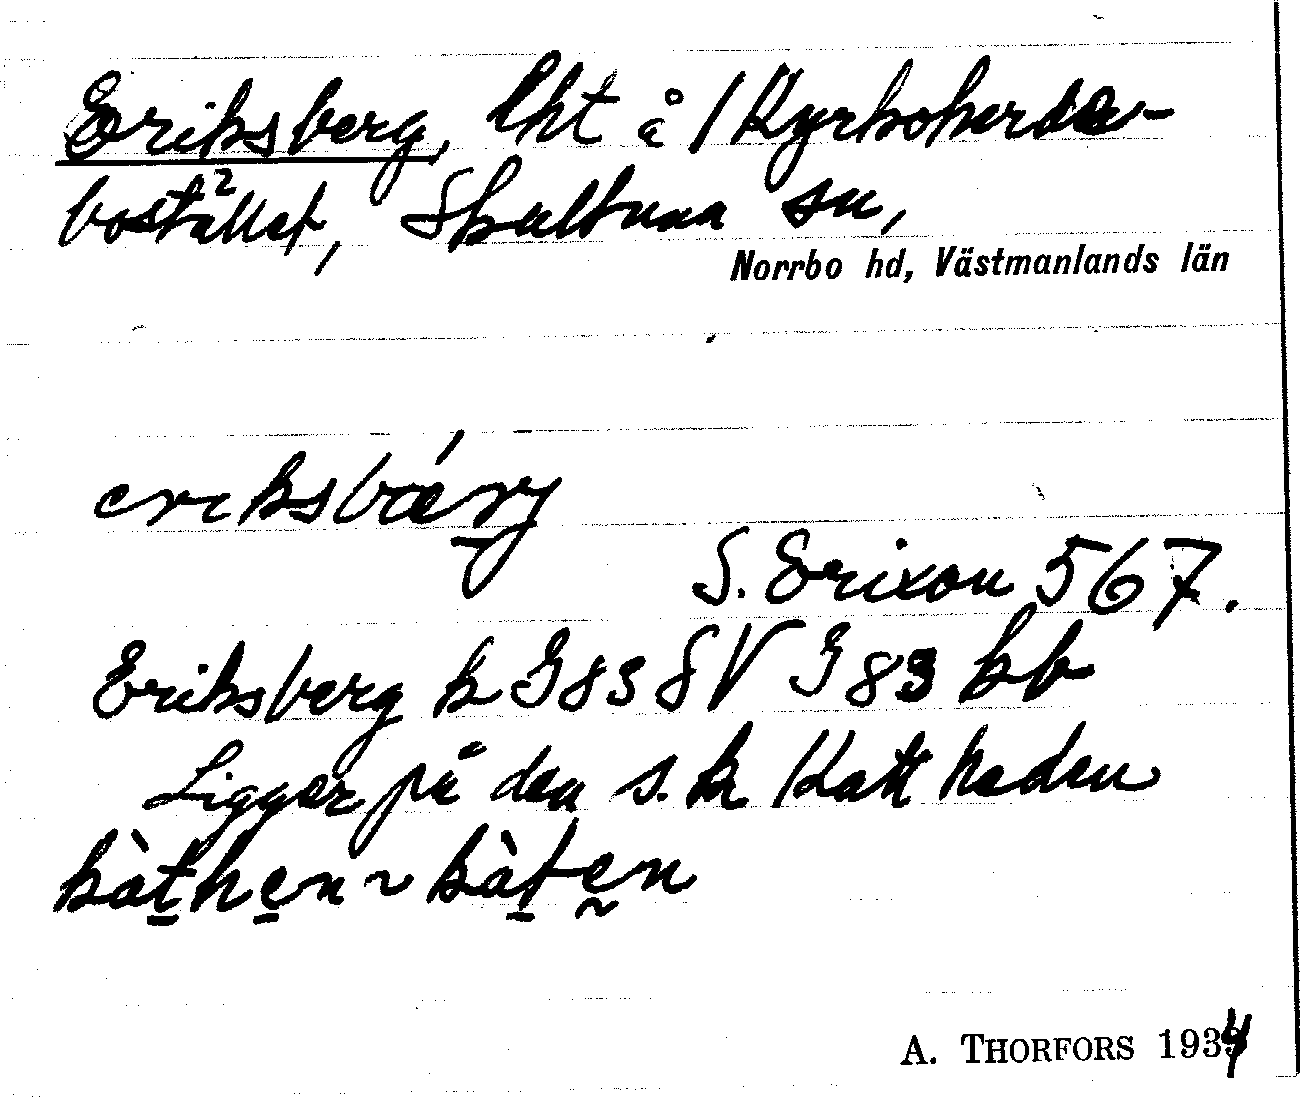 Eriksberg, lht å Kyrkoherde-
bostället², Skultuna sn,
Norrbo hd, Västmanlands län
eriksbǽrj
S. Erixon 567.
Eriksberg k G 83 SV G 83 kb
Ligger på den s.k Katt heden
kàthen ~ kàten
A. THORFORS 1934